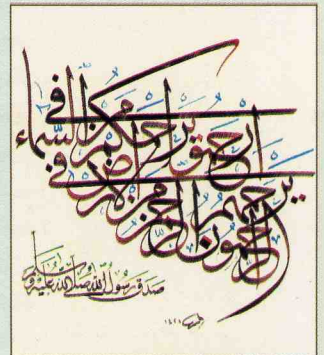 الراحمون يرحمهم الرحمن
ارحموا من في الأرض
يرحمكم من في السماء
صدق رسول الله صلى الله عليه وسلم
١٤٢٨